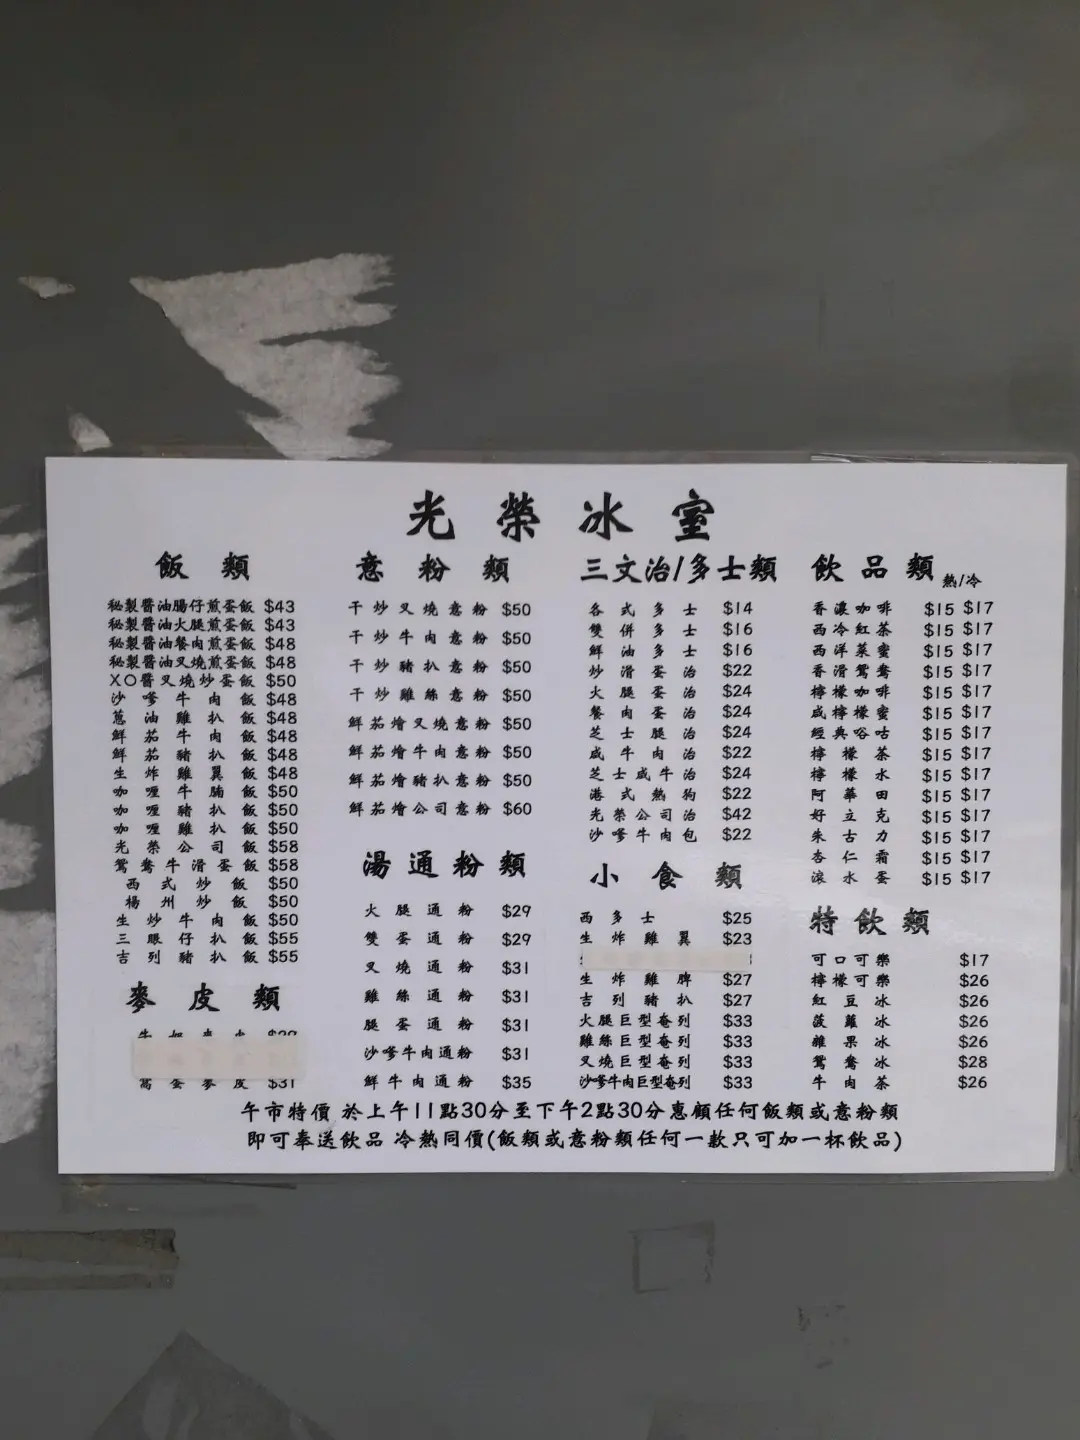 光榮冰室
飯類
秘製醬油腸仔煎蛋飯 $43
秘製醬油火腿煎蛋飯 $43
秘製醬油餐肉煎蛋飯 $48
秘製醬油叉燒煎蛋飯 $48
XO醬叉燒炒蛋飯 $50
沙嗲牛肉飯 $48
蔥油雞扒飯 $48
鮮茄牛肉飯 $48
鮮茄豬扒飯 $48
生炸雞翼飯 $48
咖喱牛腩飯 $50
咖喱豬扒飯 $50
咖喱雞扒飯 $50
光榮公司飯 $58
鴛鴦牛滑蛋飯 $58
西式炒飯 $50
楊州炒飯 $50
生炒牛肉飯 $50
三眼仔扒飯 $55
吉列豬扒飯 $55
麥皮類
窩蛋麥皮 $31
意粉類
干炒叉燒意粉 $50
干炒牛肉意粉 $50
干炒豬扒意粉 $50
干炒雞絲意粉 $50
鮮茄燴叉燒意粉 $50
鮮茄燴牛肉意粉 $50
鮮茄燴豬扒意粉 $50
鮮茄燴公司意粉 $60
湯通粉類
火腿通粉 $29
雙蛋通粉 $29
叉燒通粉 $31
雞絲通粉 $31
腿蛋通粉 $31
沙嗲牛肉通粉 $31
鮮牛肉通粉 $35
三文治/多士類
各式多士 $14
雙併多士 $16
鮮油多士 $16
炒滑蛋治 $22
火腿蛋治 $24
餐肉蛋治 $24
芝士腿治 $24
咸牛肉治 $22
芝士咸牛治 $24
港式熱狗 $22
光榮公司治 $42
沙嗲牛肉包 $22
小食類
西多士 $25
生炸雞翼 $23
生炸雞脾 $27
吉列豬扒 $27
火腿巨型奄列 $33
雞絲巨型奄列 $33
叉燒巨型奄列 $33
沙嗲牛肉巨型奄列 $33
飲品類 熱/冷
香濃咖啡 $15 $17
西冷紅茶 $15 $17
西洋菜蜜 $15 $17
香滑鴛鴦 $15 $17
檸檬咖啡 $15 $17
咸檸檬蜜 $15 $17
經典唂咕 $15 $17
檸檬茶 $15 $17
檸檬水 $15 $17
阿華田 $15 $17
好立克 $15 $17
朱古力 $15 $17
杏仁霜 $15 $17
滾水蛋 $15 $17
特飲類
可口可樂 $17
檸檬可樂 $26
紅豆冰 $26
菠蘿冰 $26
雜果冰 $26
鴛鴦冰 $28
牛肉茶 $26
午市特價 於上午11點30分至下午2點30分惠顧任何飯類或意粉類
即可奉送飲品 冷熱同價(飯類或意粉類任何一款只可加一杯飲品)